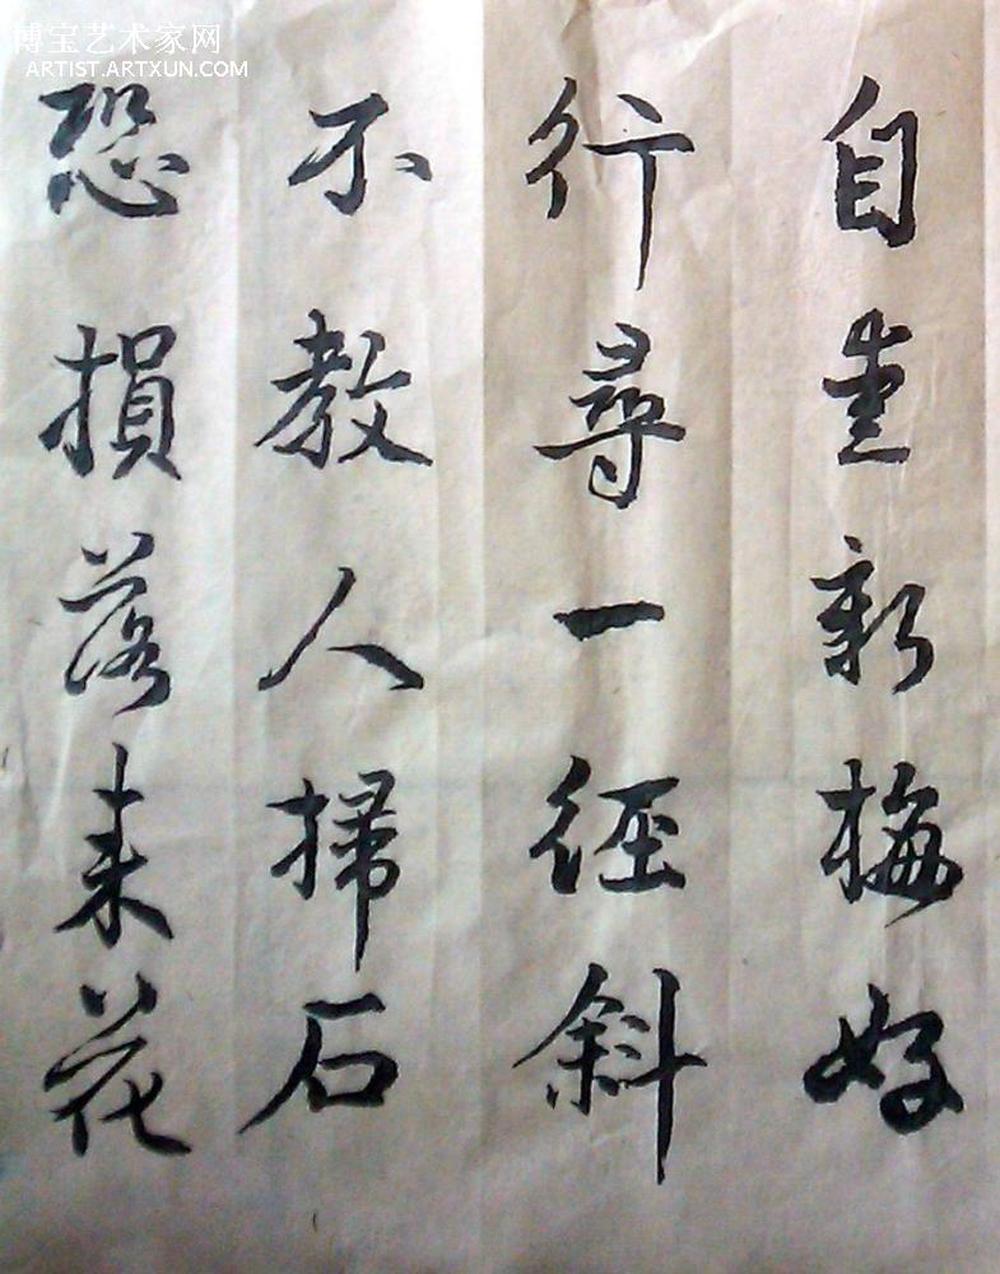 博宝艺术家网
ARTIST.ARTXUN.COM
自愛新梅好
行尋一徑斜
不教人掃石
恐損落来花